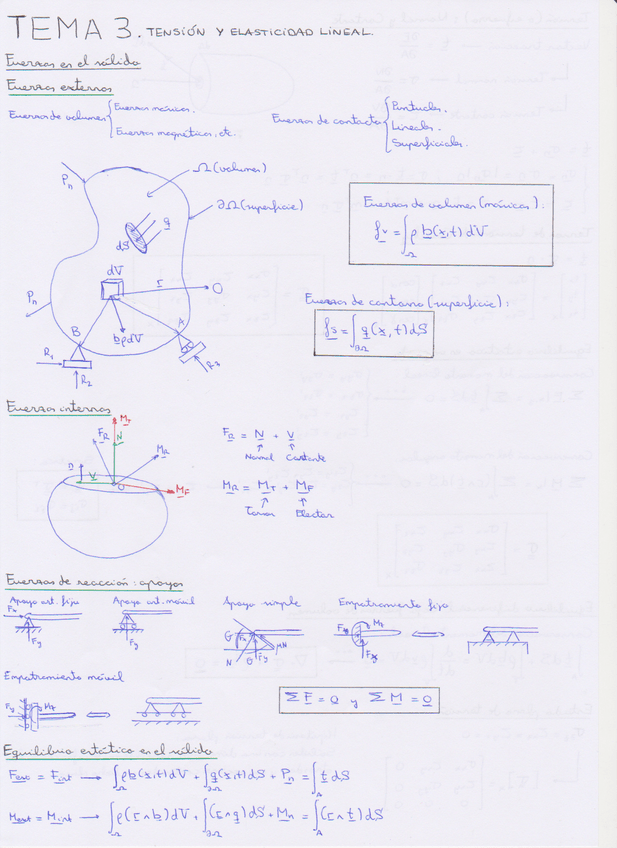 TEMA 3. TENSIÓN Y ELASTICIDAD LINEAL.
Fuerzas en el sólido
Fuerzas externas
Fuerzas de volumen { Fuerzas másicas.
Fuerzas magnéticas, etc.
Fuerzas de contacto { Puntuales.
Lineales.
Superficiales.
Pn
Ω (volumen)
∂Ω (superficie)
q
dS
dV
r
O
Pn
B
A
bρdV
R1
R2
R3
Fuerzas de volumen (másicas):
fv = ∫Ω ρ b(x,t) dV
Fuerzas de contacto (superficie):
fs = ∫∂Ω q(x,t) dS
Fuerzas internas
MT
FR
N
MR
V
O
MF
FR = N + V
Normal Cortante
MR = MT + MF
Torsor Flector
Fuerzas de reacción: apoyos
Apoyo art. fijo
Apoyo art. móvil
Apoyo simple
Empotramiento fijo
Fx
Fy
Fy
G
Fx
N
O
Fy
MN
Fx
Mz
Empotramiento móvil
Fy
Mz
ΣF = 0 y ΣM = 0
Equilibrio estático en el sólido
Fext = Fint → ∫Ω ρb(x,t)dV + ∫∂Ω q(x,t)dS + Pn = ∫A t dS
Mext = Mint → ∫Ω ρ(r∧b)dV + ∫∂Ω (r∧q)dS + Mn = ∫A (r∧t)dS